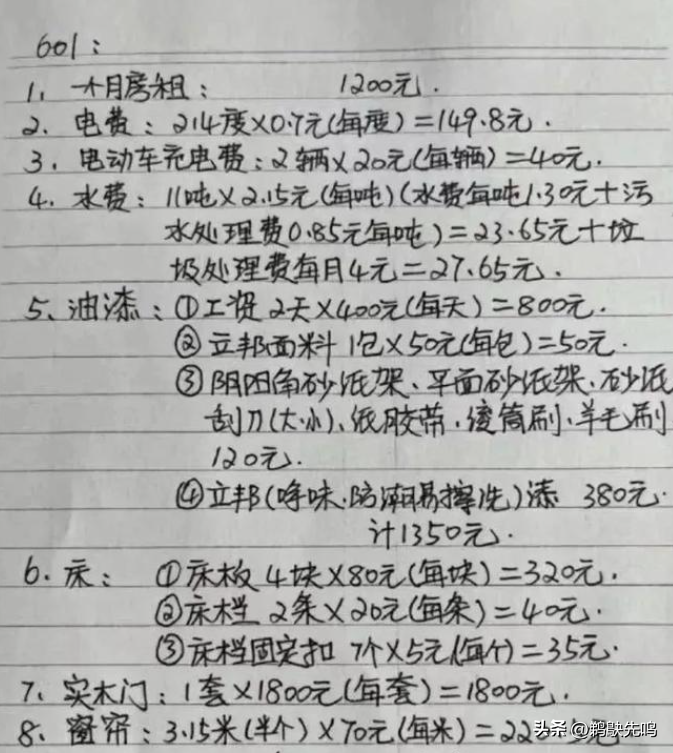 601:
1. 一个月房租: 1200元.
2. 电费: 214度×0.7元(每度)=149.8元.
3. 电动车充电费: 2辆×20元(每辆)=40元.
4. 水费: 11吨×2.15元(每吨)(水费每吨1.30元+污
水处理费0.85元每吨)=23.65元+垃
圾处理费每月4元=27.65元.
5、油漆: ①工资 2天×400元(每天)=800元.
②立邦面料 1包×50元(每包)=50元.
③阴阳角砂纸架、平面砂纸架、砂纸
刮刀(大小)、纸胶带.滚筒刷、羊毛刷
120元.
④立邦(净味.防潮易擦洗)漆 380元.
计1350元.
6. 床: ①床板 4块×80元(每块)=320元.
②床栏 2条×20元(每条)=40元.
③床栏固定扣 7个×5元(每个)=35元.
7、实木门: 1套×1800元(每套)=1800元.
8、窗帘: 3.15米(半个)×70元(每米)=22
头条 @鹈鴃先鸣